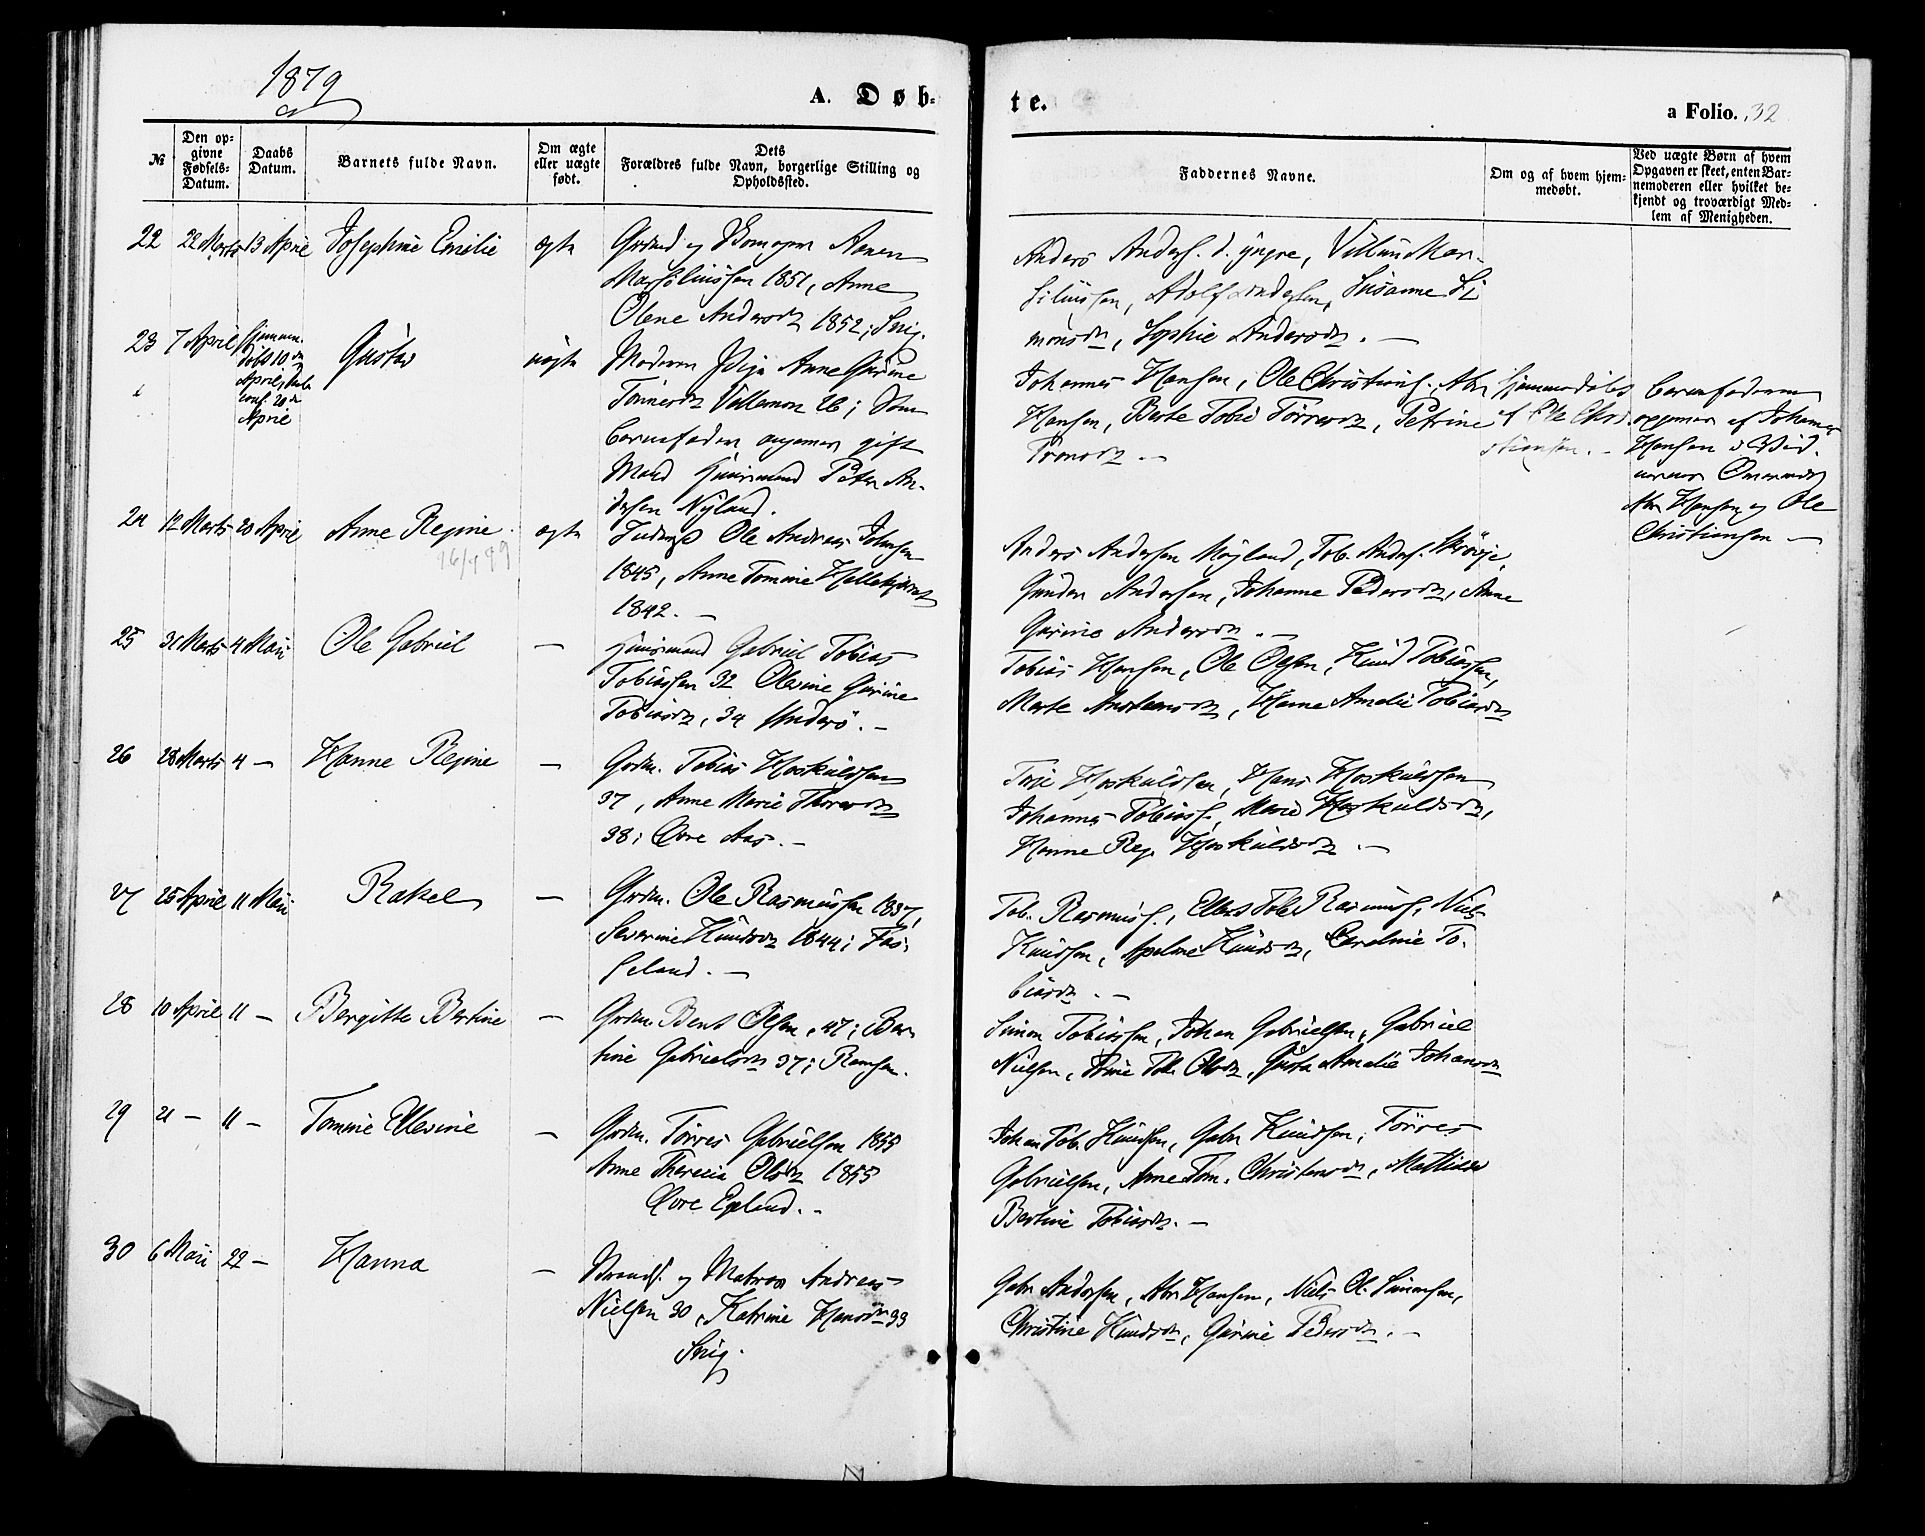 1879
A. Døb-
te.
a Folio. 32
№
Den op-
givne
Fødsels-
Datum.
Daabs
Datum.
Barnets fulde Navn.
Om ægte
eller uægte
født.
Dets
Forældres fulde Navn, borgerlige Stilling og
Opholdssted.
Faddernes Navne.
Om og af hvem hjem-
medøbt.
Ved uægte Børn af hvem
Opgaven er skeet, enten Bar-
nemoderen eller hvilket be-
kjendt og troværdigt Med-
lem af Menigheden.
22 22 Marts 13 April Josephine Emilie ægte
Anne
Olene Andersdt 1852; Svig.
Anders Anders. d. yngre,
Susanne Si
monsdt, Sophie Andersdt. —
23 7 April Hjemme-
døbt 10 de
April,
conf. 20 de
April
Gustav
uægte
Moderen Pige Anne Gurine
Tønnesdt
Barnefader angiven gift
Mand Huusmand Peter An-
dersen Nyland.
Johannes Hansen, Ole Christians. Abr
Hansen, Berte Tobie Tørresdt, Petrine
hjemmedøbt
af Ole Chri-
stiansen. -
Barnefaderen
opgiven af Johannes
Hansen
Abr Hansen og Ole
Christiansen —
24 12 Marts 20 April Anne Regine ægte
Inderst Ole Andreas Johnsen
1845, Anne Tomine
1842. —
Anders Andersen Høyland, Tob. Anders.
Gunder Andersen, Johanne Pedersdt, Anne
Gurine Andersdt. —
25 31 Marts 4 Mai Ole Gabriel —
Huusmand Gabriel Tobias
Tobiassen 32 Olevine Gurine
Tobiasdt, 34 Underö. —
Tobias Hansen, Ole Olsen, Knud Tobiassen,
Marte Andersdt, Hanne Amalie Tobiasdt
26 28 Marts 4 — Hanne Regine —
Grdm. Tobias Hoskuldsen
37, Anne Marie
38; Øvre Aas. —
Terje Hoskuldsen, Hans Hoskuldsen
Johannes Tobiass., Marie Hoskuldsdt,
Hanne Reg. Hoskuldsdt. —
27 25 April 11 Mai Rakel —
Grdm. Ole Rasmussen 1837,
Severine Knudsdt 1844; Fas-
seland. —
Tob. Rasmuss., Rasmuss. Niels
Knudsen, Knudsdt, Caroline To-
biasdt. —
28 10 April 11 — Bergitte Bertine —
Grdm. Bent Olsen, 47; Ber-
tine Gabrielsdt 37;
Simon Tobiassen, Johan Gabrielsen, Gabriel
Nielsen, Olsdt, Gusta Amalie Johansdt
29 21 — 11 — Tomine Ellevine —
Grdm. Tørres Gabrielsen 1855
Anne Theresia Olsdt 1855
Øvre Egeland. -
Johan Tob. Knudsen, Gabr Knudsen, Tørres
Gabrielsen, Anne Tom. Christensdt, Mathilde
Bertine Tobiasdt. —
30 6 Mai 22 — Hanna —
og Matros Andreas
Nielsen 30, Katrine Hansdtr 33
Svig.
Gabr Andersen, Abr Hansen, Niels Ol. Simonsen,
Christine Knudsdt, Gurine Pedersdt. —